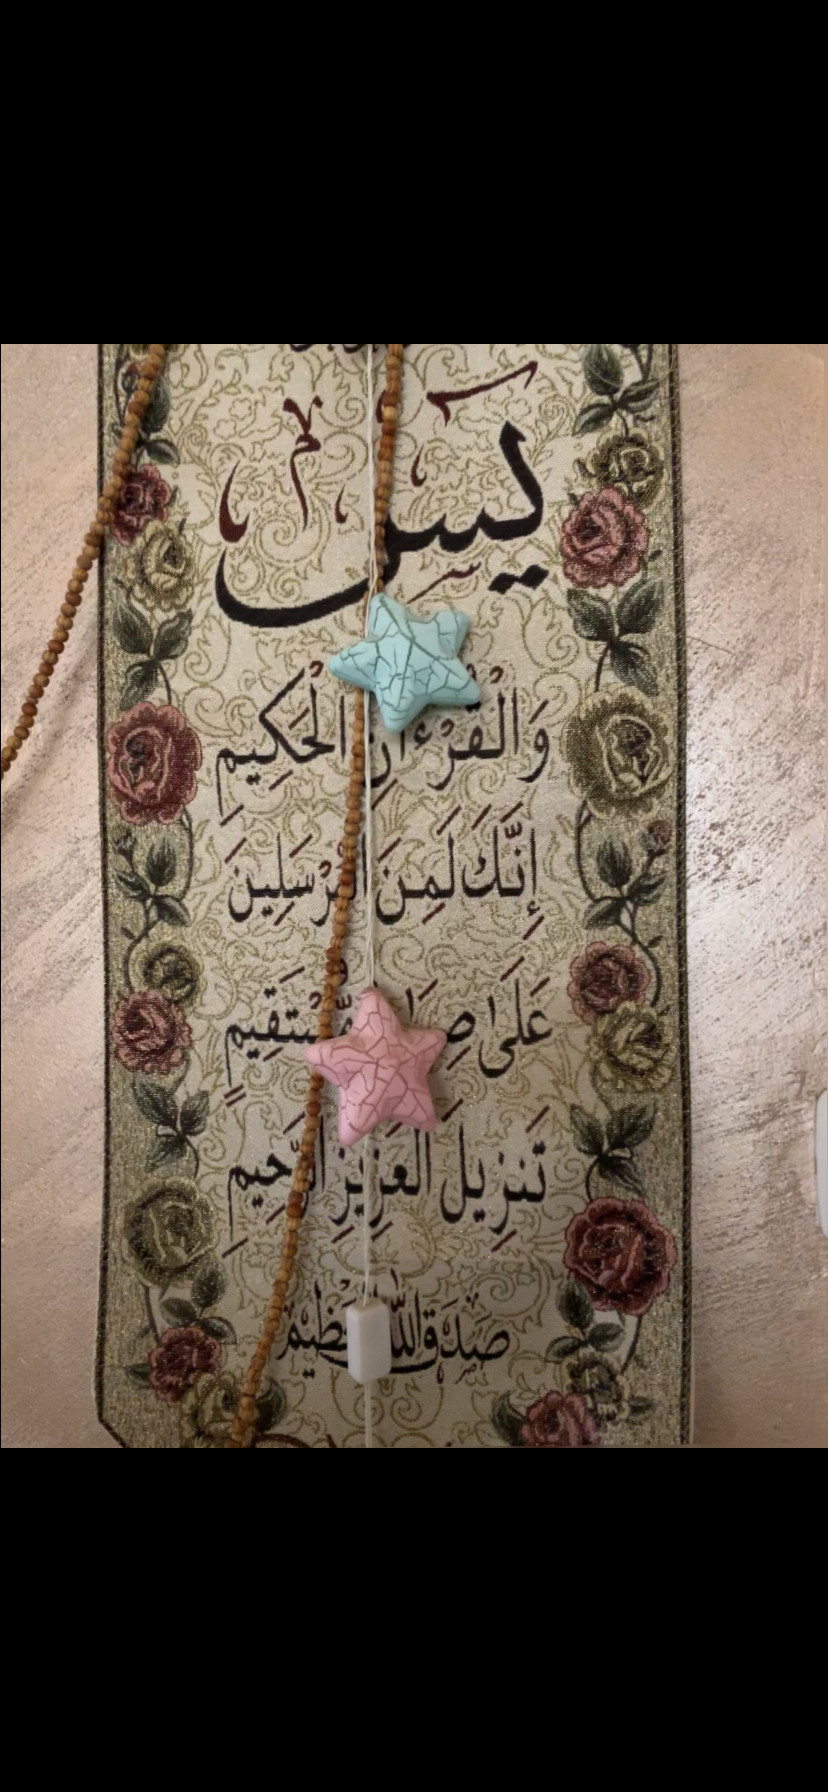 يسٓ
وَالْقُرْءَانِ الْحَكِيمِ
إِنَّكَ لَمِنَ الْمُرْسَلِينَ
عَلَىٰ صِرَاطٍ مُّسْتَقِيمٍ
تَنزِيلَ الْعَزِيزِ الرَّحِيمِ
صَدَقَ اللَّهُ الْعَظِيمُ